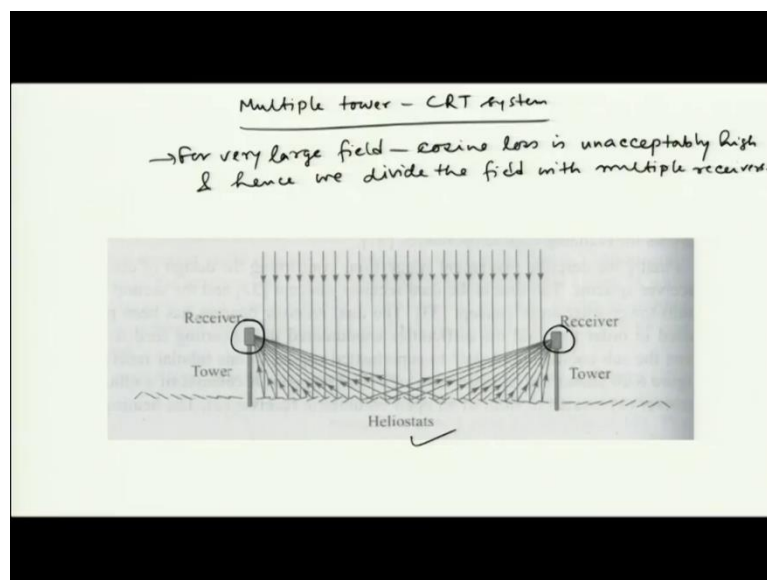 Multiple tower - CRT system
→ For very large field - cosine loss is unacceptably high
& hence we divide the field with multiple receivers.
Receiver Receiver
Tower Tower
Heliostats